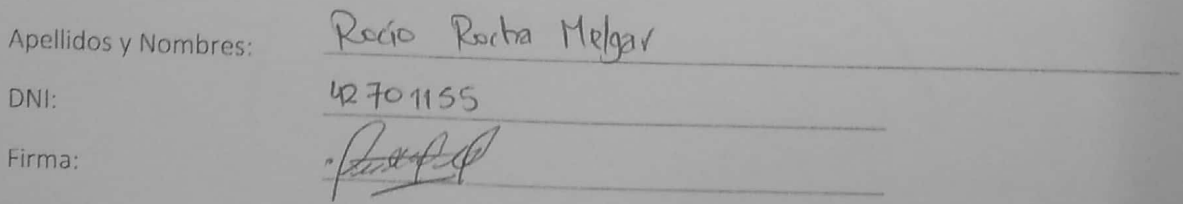 Apellidos y Nombres: Rocío Rocha Melgar
DNI: 42701155
Firma: